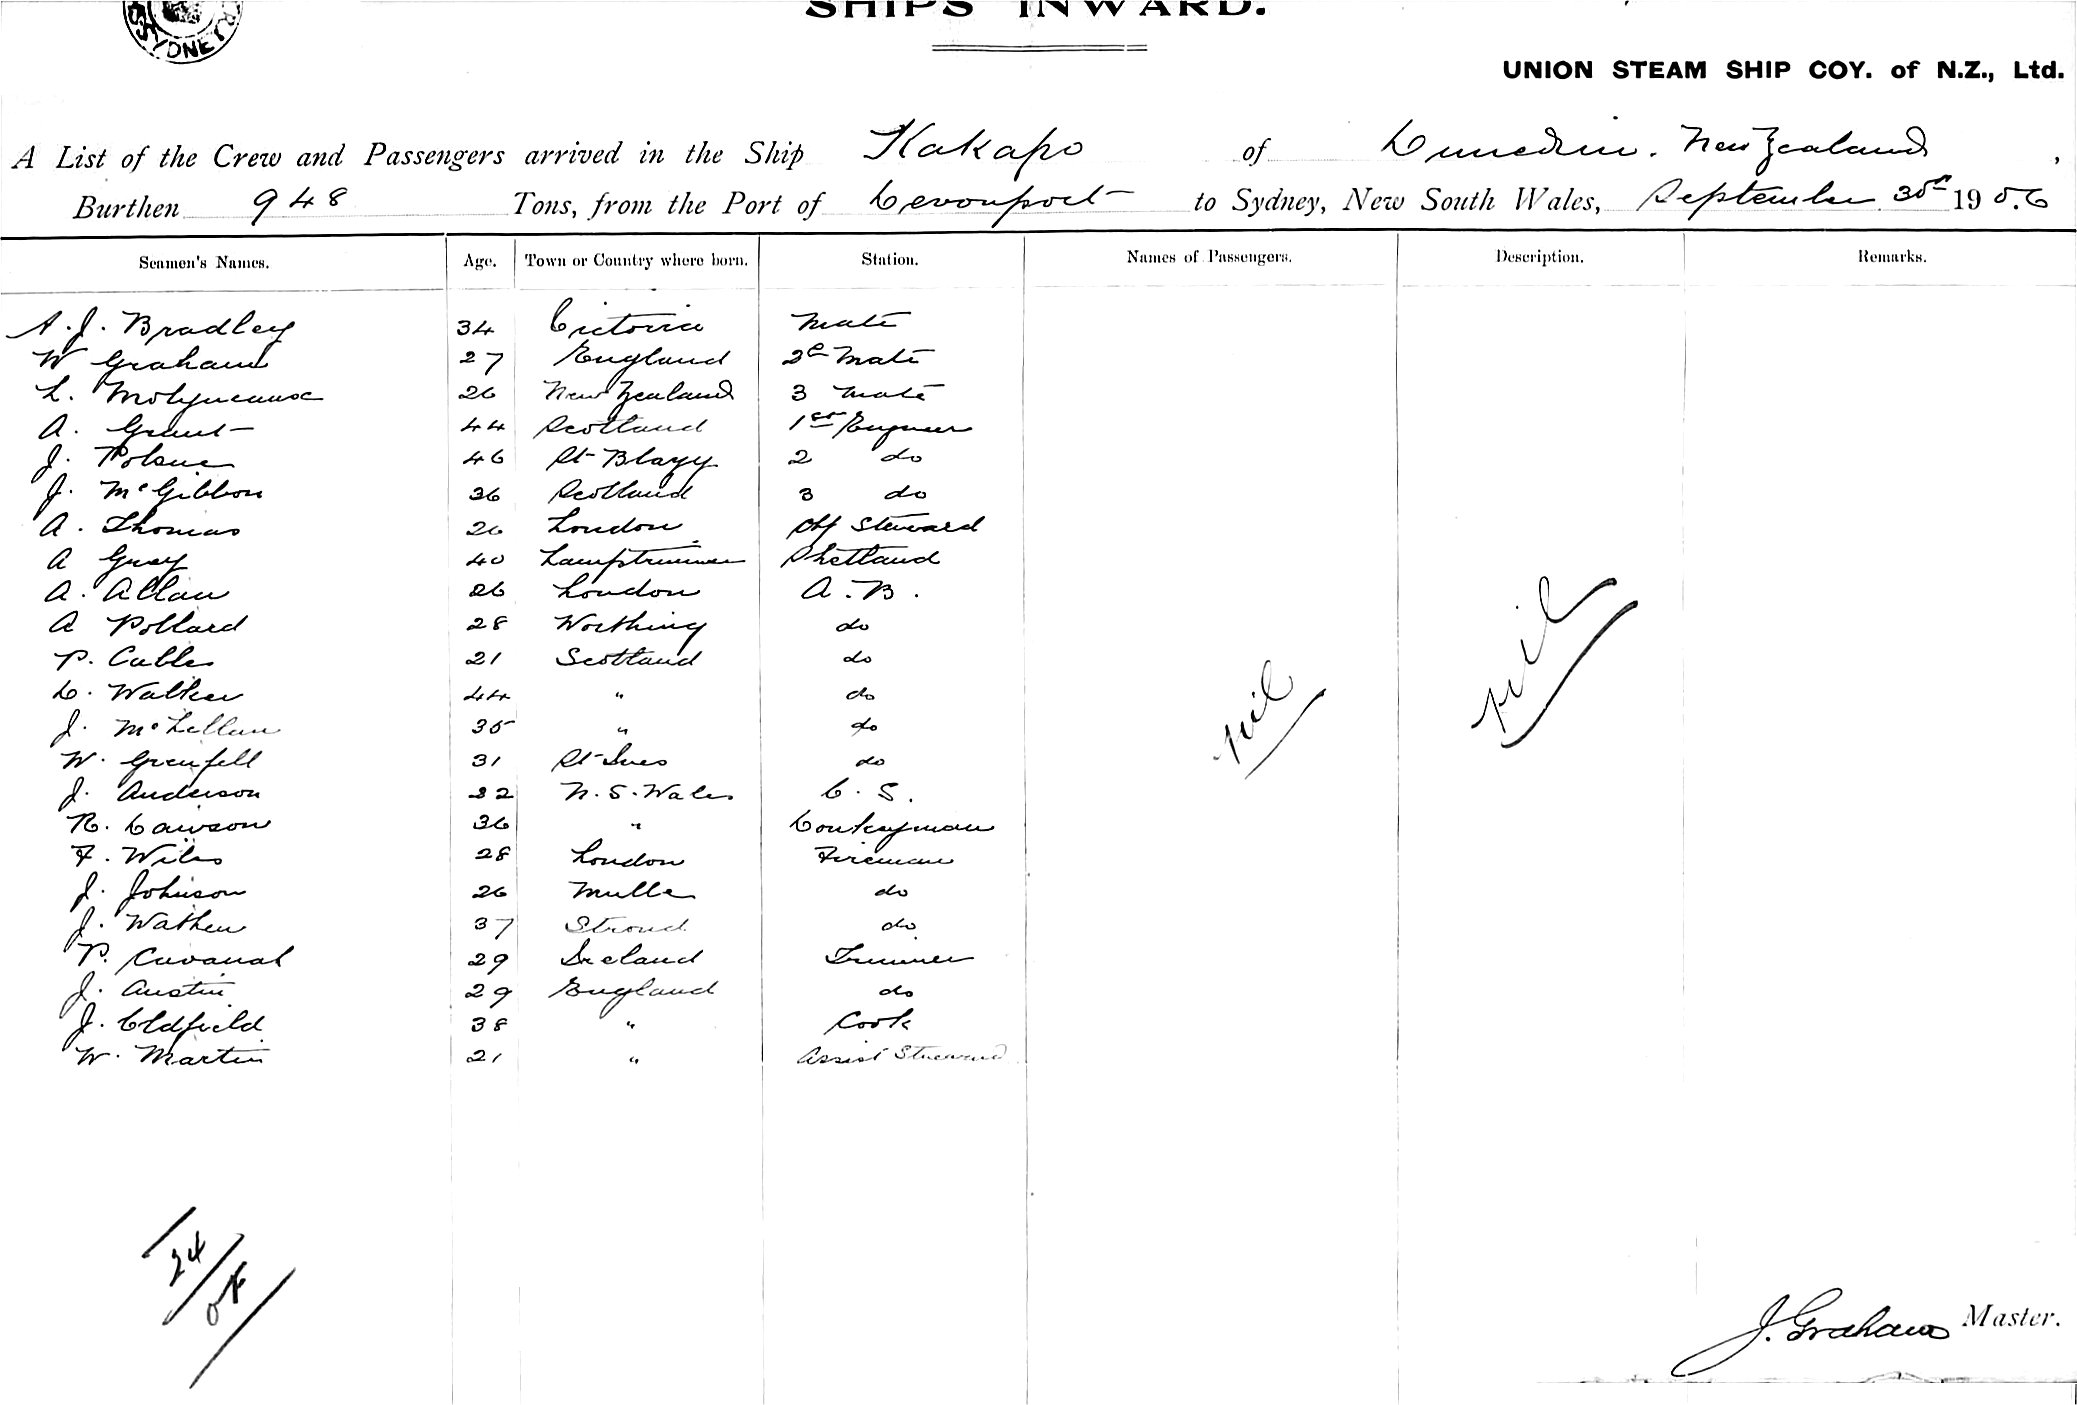 SYDNEY
SHIPS INWARD.
UNION STEAM SHIP COY. of N.Z., Ltd.
A List of the Crew and Passengers arrived in the Ship Kakapo of Dunedin. New Zealand,
Burthen 948 Tons, from the Port of Devonport to Sydney, New South Wales, September 30th 1906
Seamen's Names. Age. Town or Country where born. Station. Names of Passengers. Description. Remarks.
A. J. Bradley 34 Victoria Mate
W Graham 27 England 2nd Mate
L. Molyneaux 26 New Zealand 3 Mate
A. Grant 44 Scotland 1st Engineer
J. Polsue 46 St Blazy 2 do
J. McGibbon 36 Scotland 3 do
A. Thomas 26 London Chf Steward
A Gray 40 Lamptrimmer Shetland
A. Allan 26 London A. B.
A Pollard 28 Worthing do
P. Cable 21 Scotland do
D. Walker 44 " do
J. McLellan 35 " do
W. Grenfell 31 St Ives do
J. Anderson 22 N. S. Wales O. S.
R. Dawson 36 " Donkeyman
F. Wiles 28 London Fireman
J. Johnson 26 Mull do
J. Wathen 37 Stroud do
P. Cavanah 29 Ireland Trimmer
J. Austin 29 England do
J. Oldfield 38 " Cook
W. Martin 21 " Assist Steward
nil nil
24
J. Graham Master.